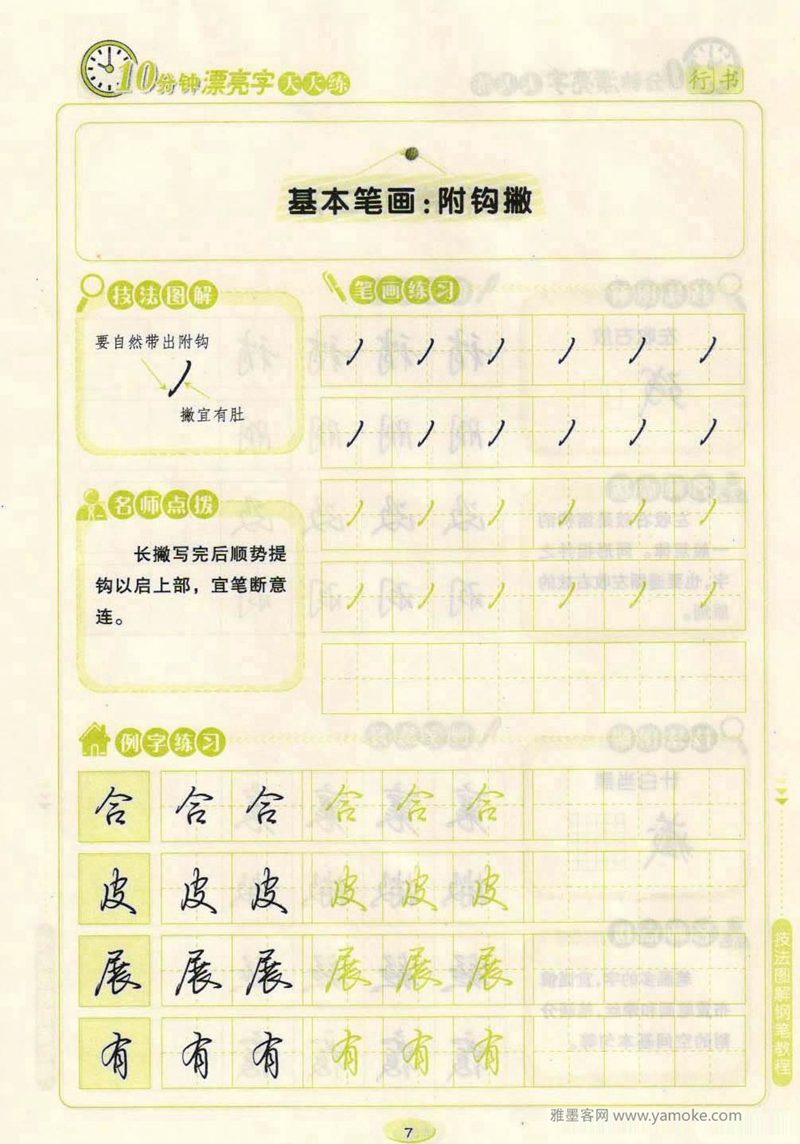 10分钟漂亮字天天练
行书
基本笔画：附钩撇
技法图解
要自然带出附钩
撇宜有肚
笔画练习
名师点拨
长撇写完后顺势提
钩以启上部，宜笔断意
连。
例字练习
合 合 合 合 合 合
皮 皮 皮 皮 皮 皮
展 展 展 展 展 展
有 有 有 有 有 有
技法图解钢笔教程
7
雅墨客网 www.yamoke.com